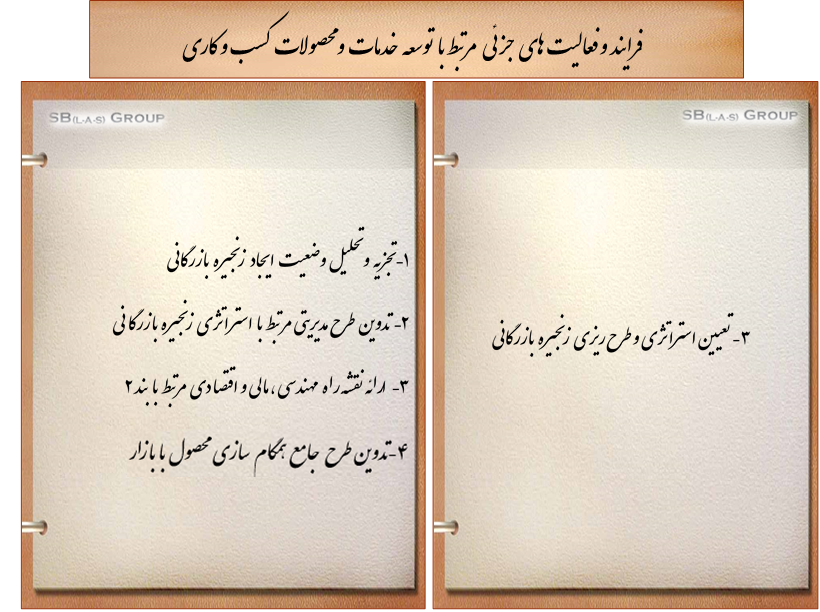 فرایند و فعالیت های جزئی مرتبط با توسعه خدمات و محصولات کسب و کاری
SB(L-A-S) GROUP
۳- تعیین استراتژی و طرح ریزی زنجیره بازرگانی
SB(L-A-S) GROUP
۱-تجزیه و تحلیل وضعیت ایجاد زنجیره بازرگانی
۲- تدوین طرح مدیریتی مرتبط با استراتژی زنجیره بازرگانی
۳- ارائه نقشه راه مهندسی ،مالی و اقتصادی مرتبط با بند ۲
۴-تدوین طرح جامع همگام سازی محصول با بازار